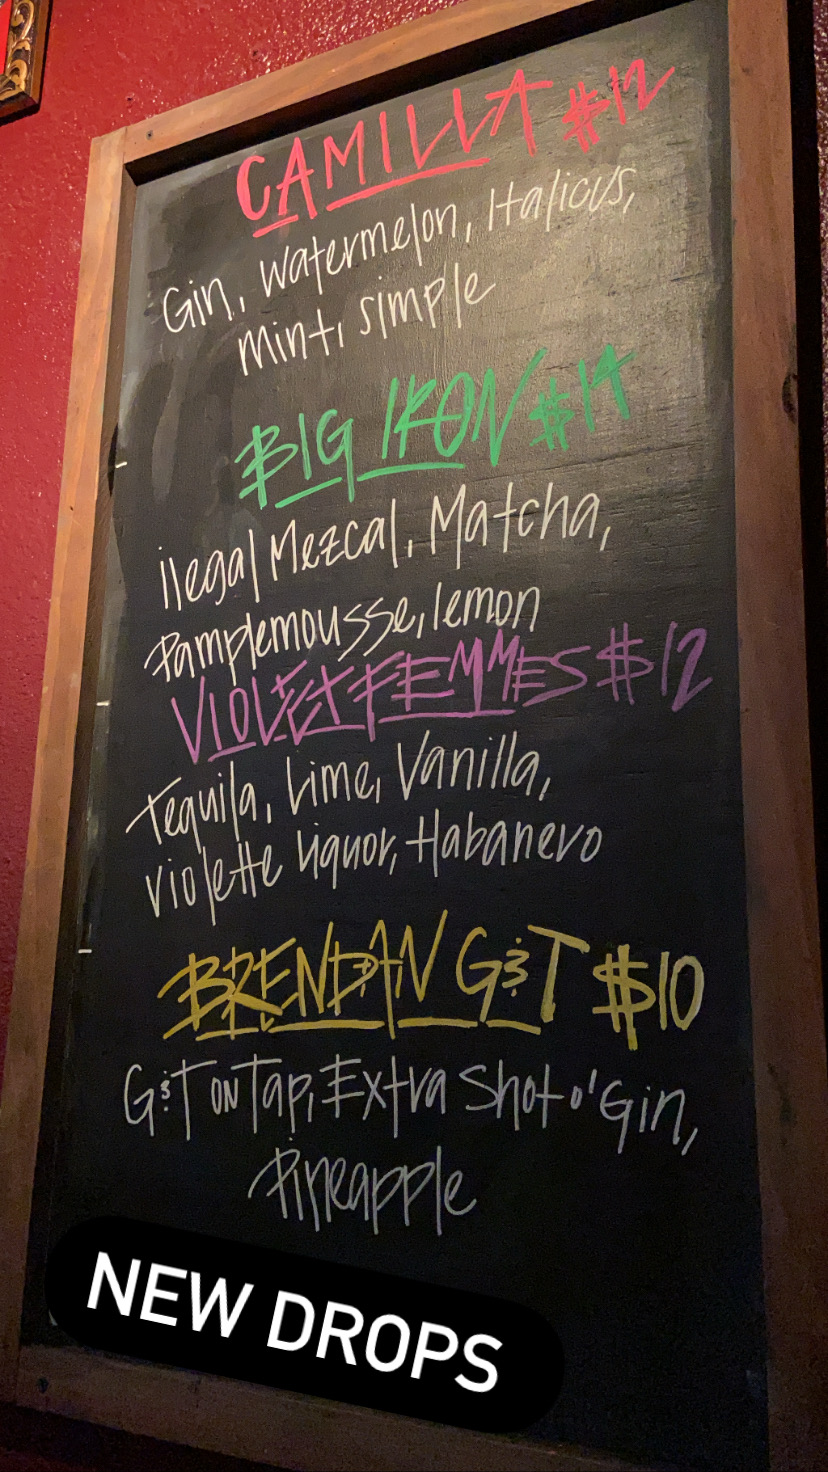 CAMILLA $12
Gin, Watermelon, Italicus,
Mint, simple
BIG IRON $14
ilegal Mezcal, Matcha,
Pamplemousse, lemon
VIOLET FEMMES $12
Tequila, Lime, Vanilla,
Violette liquor, Habanero
BRENDAN G&T $10
G&T ON Tap, Extra Shot o' Gin,
Pineapple
NEW DROPS